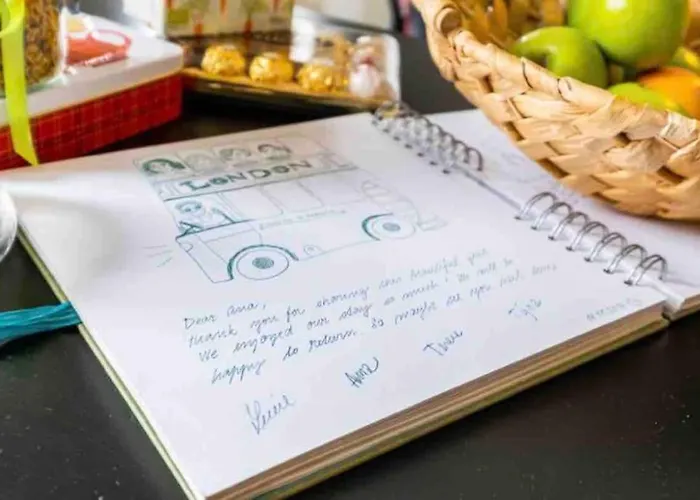 LONDON
Dear Ana,
thank you for showing this beautiful place
We enjoyed our stay so much! We will be
happy to return. So maybe see you next time,
Ana